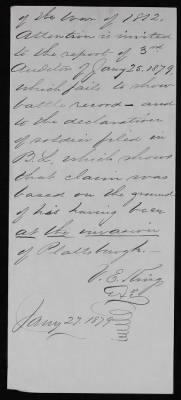 of the War of 1812.
Attention is invited
to the report of 3rd
Auditor of Jany 25. 1879,
which fails to show
battle record - and
to the declaration
of soldier filed in
B.L. which shows
that claim was
based on the ground
of his having been
at the invasion
of Plattsburgh. -
V. E. King
Jany 27. 1879